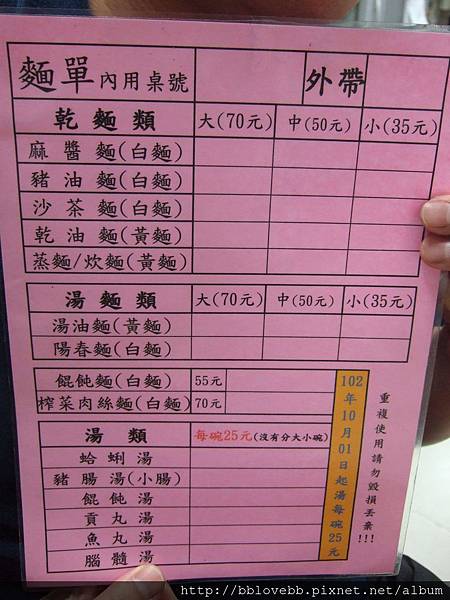 麵單 內用桌號 外帶
乾麵類 大(70元) 中(50元) 小(35元)
麻醬麵(白麵)
豬油麵(白麵)
沙茶麵(白麵)
乾油麵(黃麵)
蒸麵/炊麵(黃麵)
湯麵類 大(70元) 中(50元) 小(35元)
湯油麵(黃麵)
陽春麵(白麵)
餛飩麵(白麵) 55元
榨菜肉絲麵(白麵) 70元
湯類 每碗25元(沒有分大小碗)
蛤蜊湯
豬腸湯(小腸)
餛飩湯
貢丸湯
魚丸湯
腦髓湯
102年10月01日起湯每碗25元
重複使用請勿毀損丟棄!!!
http://bblovebb.pixnet.net/album